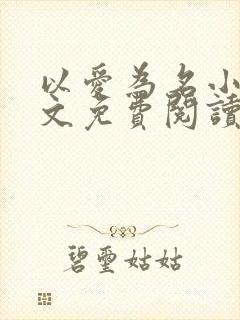 以愛為名小
文免費閱讀
碧璽姑姑